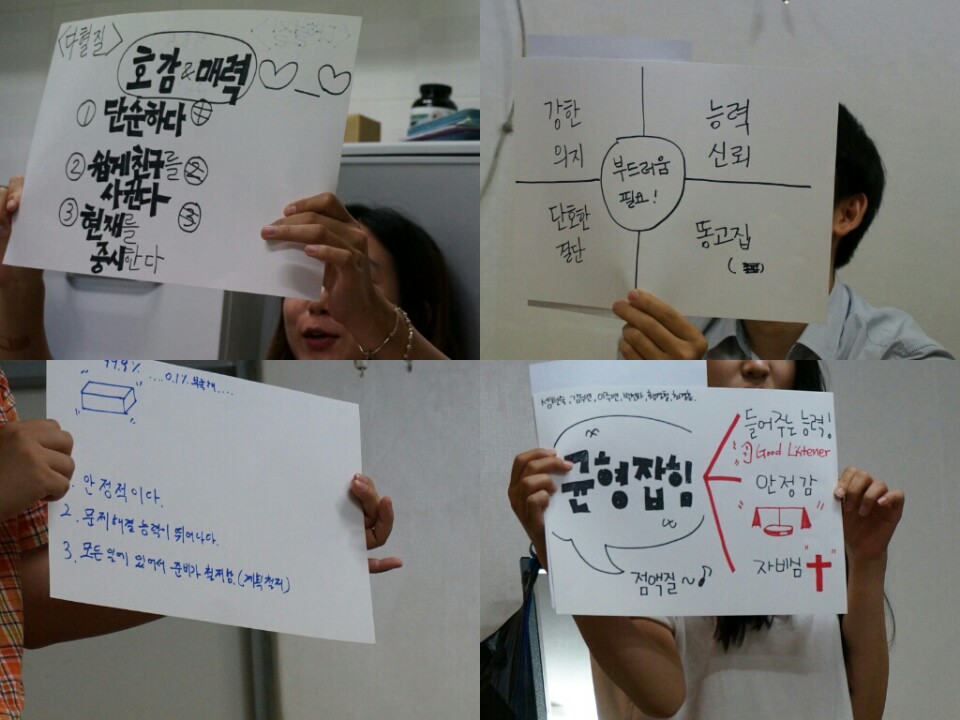 <다혈질>
호감 & 매력
① 단순하다
② 쉽게 친구를
사귄다
③ 현재를
중시한다
강한
의지
능력
신뢰
부드러움
필요!
단호한
결단
똥고집
99.9%
...0.1% 부족해....
1. 안정적이다.
2. 문제해결 능력이 뛰어나다.
3. 모든 일에 있어서 준비가 철저함.(계획철저)
균형잡힘
점액질~♪
들어주는 능력!
Good Listener
안정감
자비심